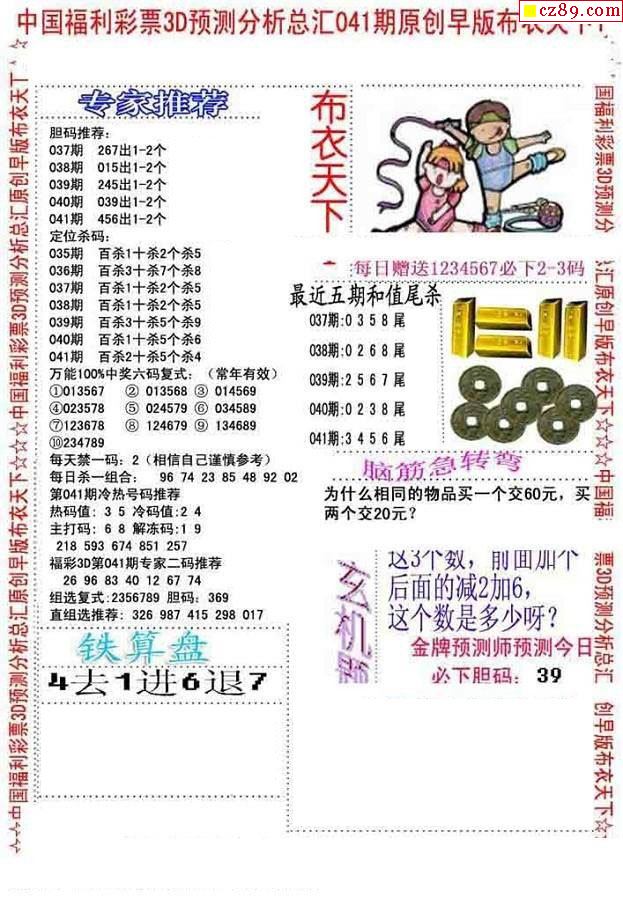 cz89.com
中国福利彩票3D预测分析总汇041期原创早版布衣天下
专家推荐
胆码推荐:
037期 267出1-2个
038期 015出1-2个
039期 245出1-2个
040期 039出1-2个
041期 456出1-2个
定位杀码:
035期 百杀1十杀2个杀5
036期 百杀3十杀7个杀8
037期 百杀1十杀2个杀5
038期 百杀1十杀2个杀5
039期 百杀3十杀5个杀9
040期 百杀1十杀5个杀6
041期 百杀2十杀5个杀4
万能100%中奖六码复式:（常年有效）
①013567 ②013568 ③014569
④023578 ⑤024579 ⑥034589
⑦123678 ⑧124679 ⑨134689
⑩234789
每天禁一码: 2（相信自己谨慎参考）
每日杀一组合: 96 74 23 85 48 92 02
第041期冷热号码推荐
热码值: 3 5 冷码值:2 4
主打码: 6 8 解冻码:1 9
218 593 674 851 257
福彩3D第041期专家二码推荐
26 96 83 40 12 67 74
组选复式:2356789 胆码: 369
直组选推荐: 326 987 415 298 017
铁算盘
4去1进6退7
布衣天下
每日赠送1234567必下2-3码
最近五期和值尾杀
037期:0 3 5 8 尾
038期:0 2 6 8 尾
039期:2 5 6 7 尾
040期:0 2 3 8 尾
041期:3 4 5 6 尾
脑筋急转弯
为什么相同的物品买一个交60元, 买
两个交20元?
玄机
这3个数, 前面加个
后面的减2加6,
这个数是多少呀?
金牌预测师预测今日
必下胆码: 39
☆☆中国福利彩票3D预测分析总汇原创早版布衣天下☆☆☆中国福利彩票3D预测分析总汇原创早版布衣天下☆
国福利彩票3D预测分
汇原创早版布衣天下☆☆☆中国福
票3D预测分析总汇
创早版布衣天下☆